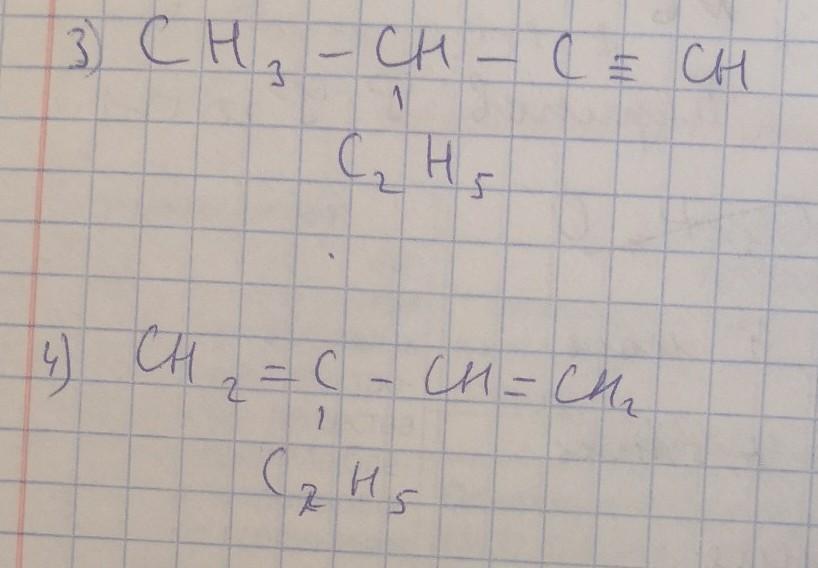 3) CH₃ – CH – C ≡ CH
C₂H₅
4) CH₂ = C – CH = CH₂
C₂H₅